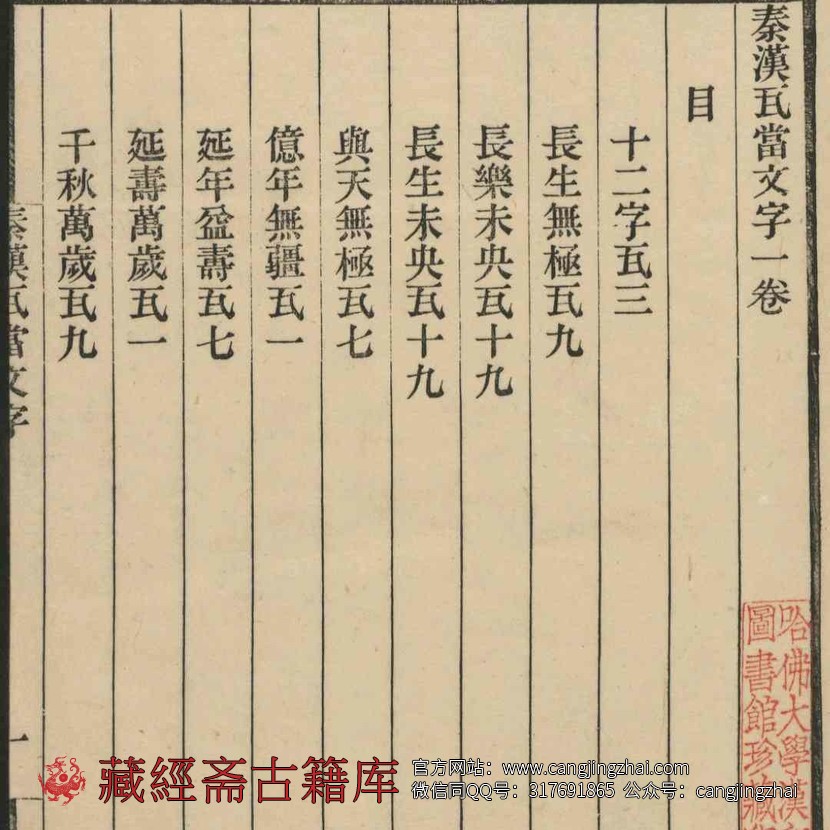 秦漢瓦當文字一卷
目
十二字瓦三
長生無極瓦九
長樂未央瓦十九
長生未央瓦十九
與天無極瓦七
億年無疆瓦一
延年益壽瓦七
延壽萬歲瓦一
千秋萬歲瓦九
秦漢瓦當文字
一
哈佛大學漢
圖書館珍藏
藏經斋古籍库
官方网站：www.cangjingzhai.com
微信同QQ号：317691865 公众号：cangjingzhai